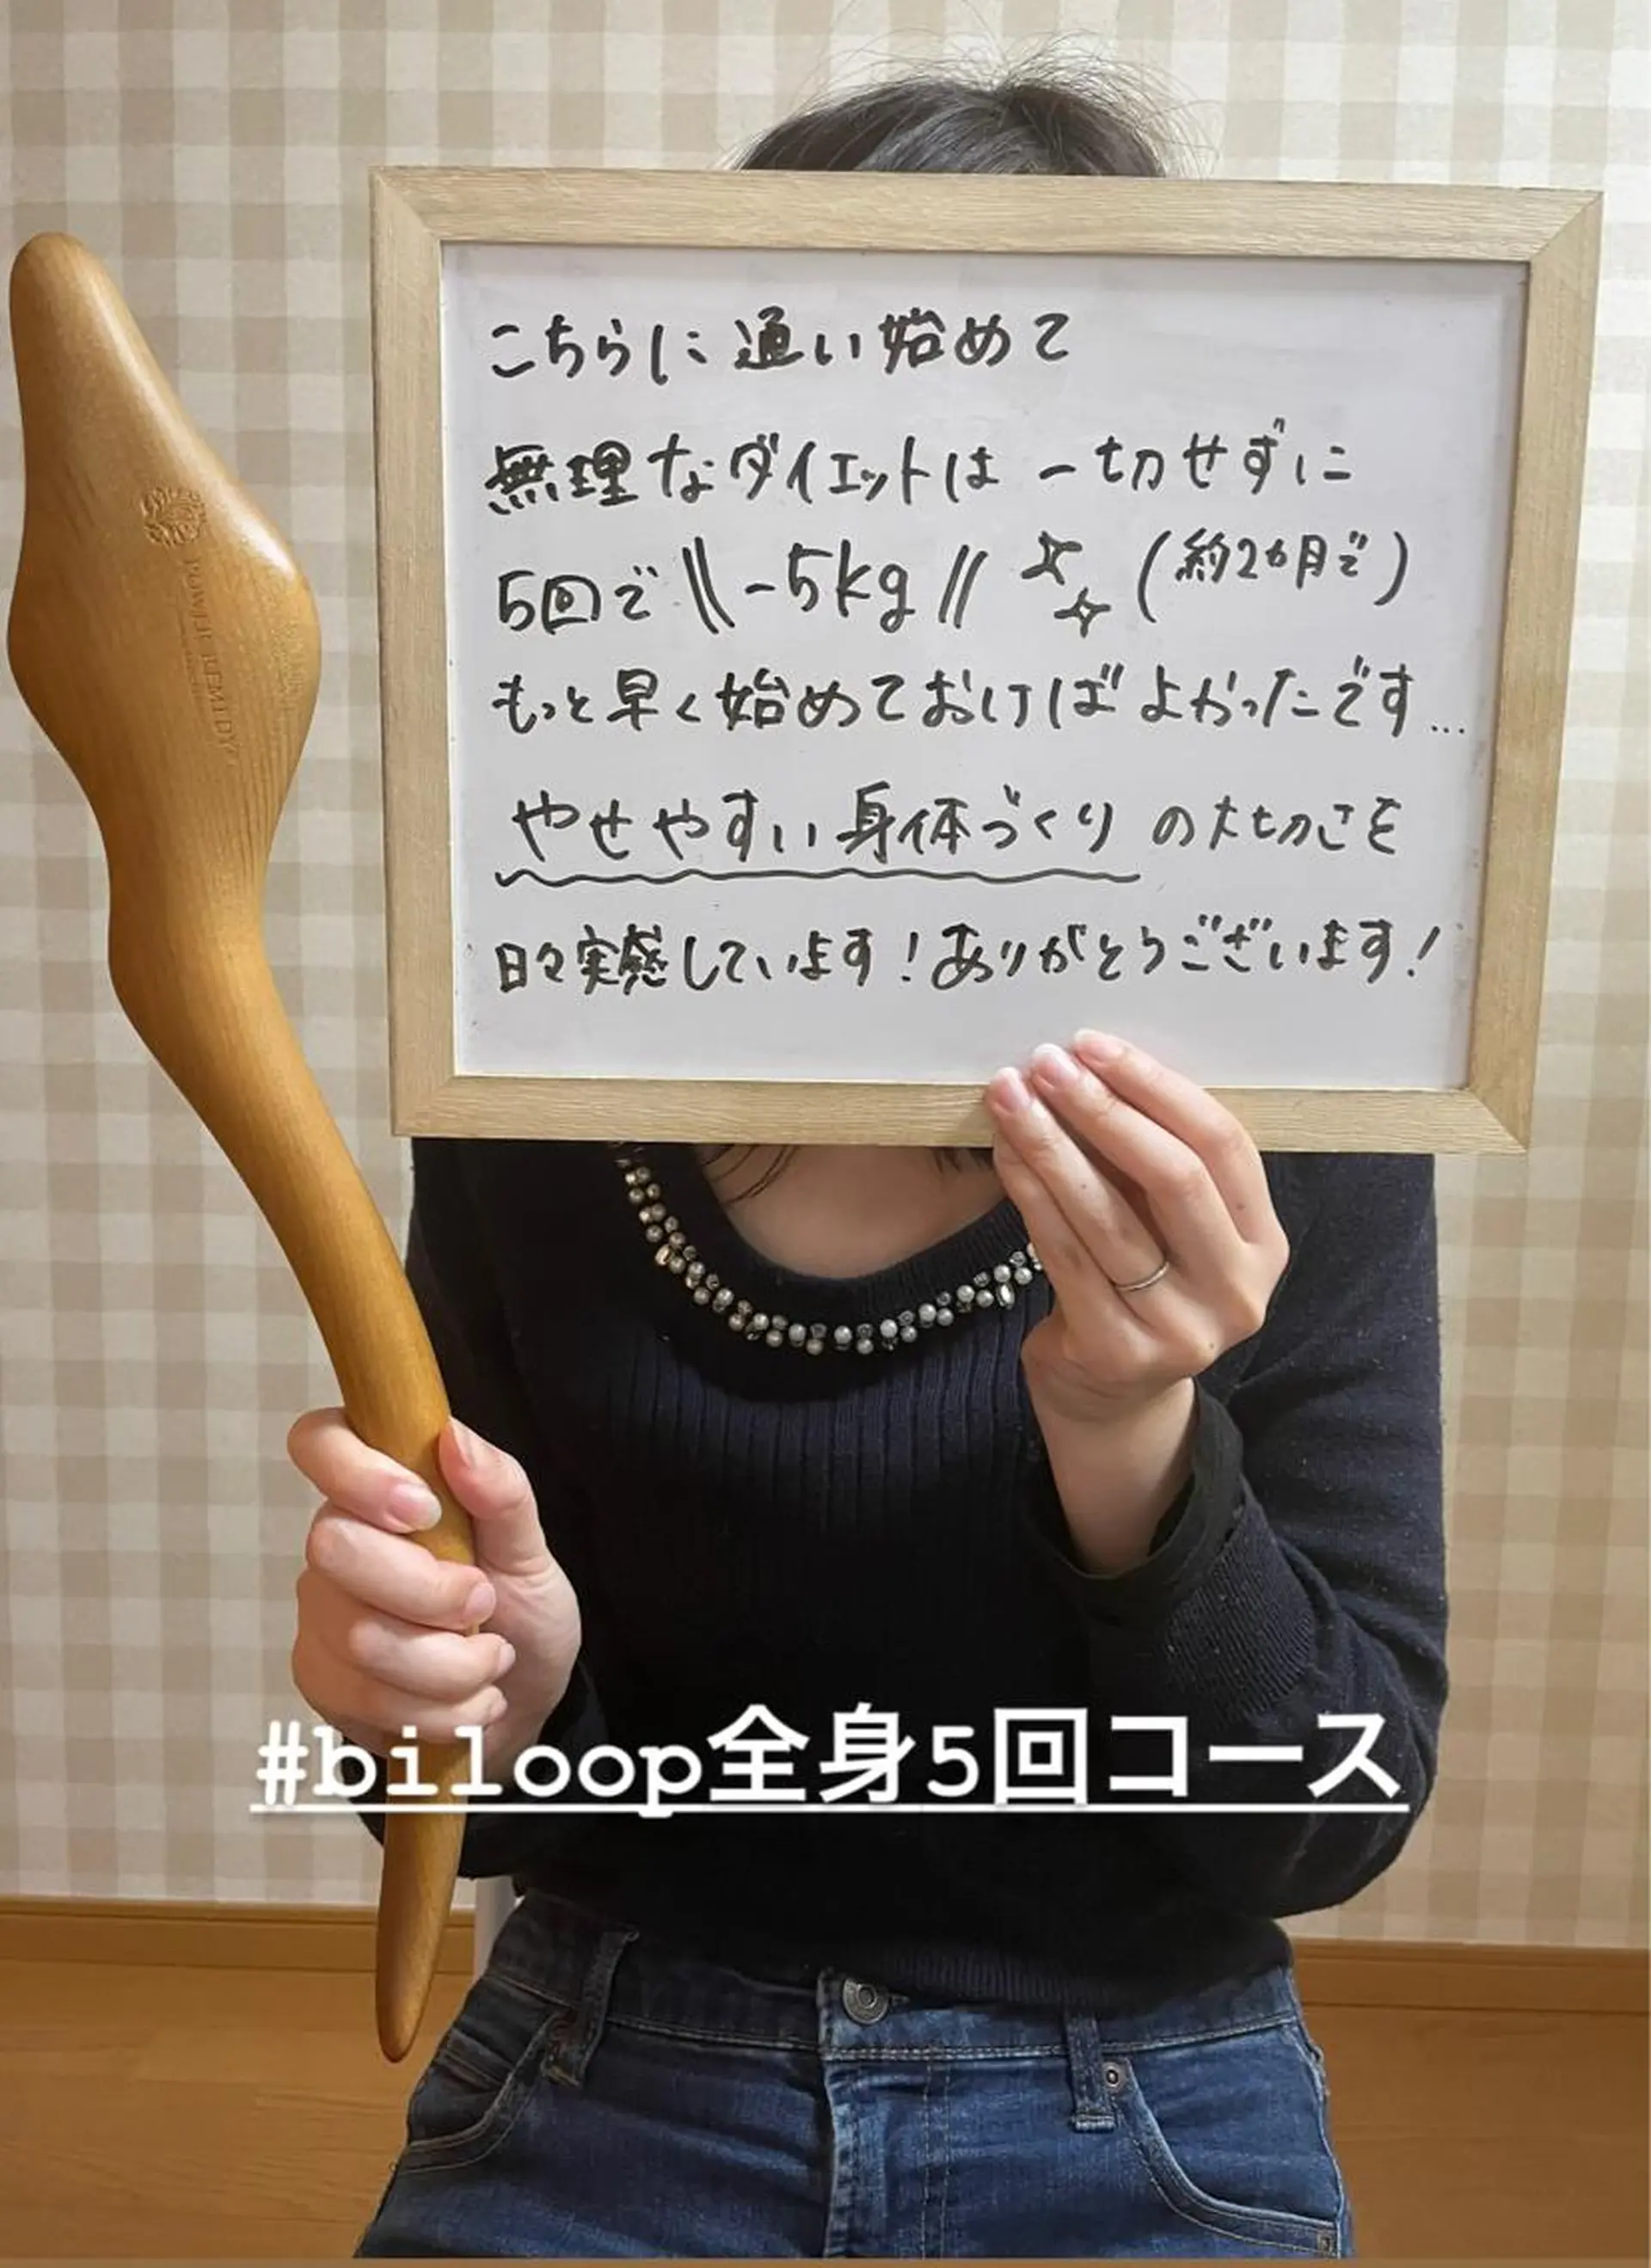 こちらに通い始めて
無理なダイエットは一切せずに
5回で \\-5kg// (約2ヵ月で)
もっと早く始めておけばよかったです…
やせやすい身体づくりの大切さを
日々実感しています!ありがとうございます!
#biloop全身5回コース